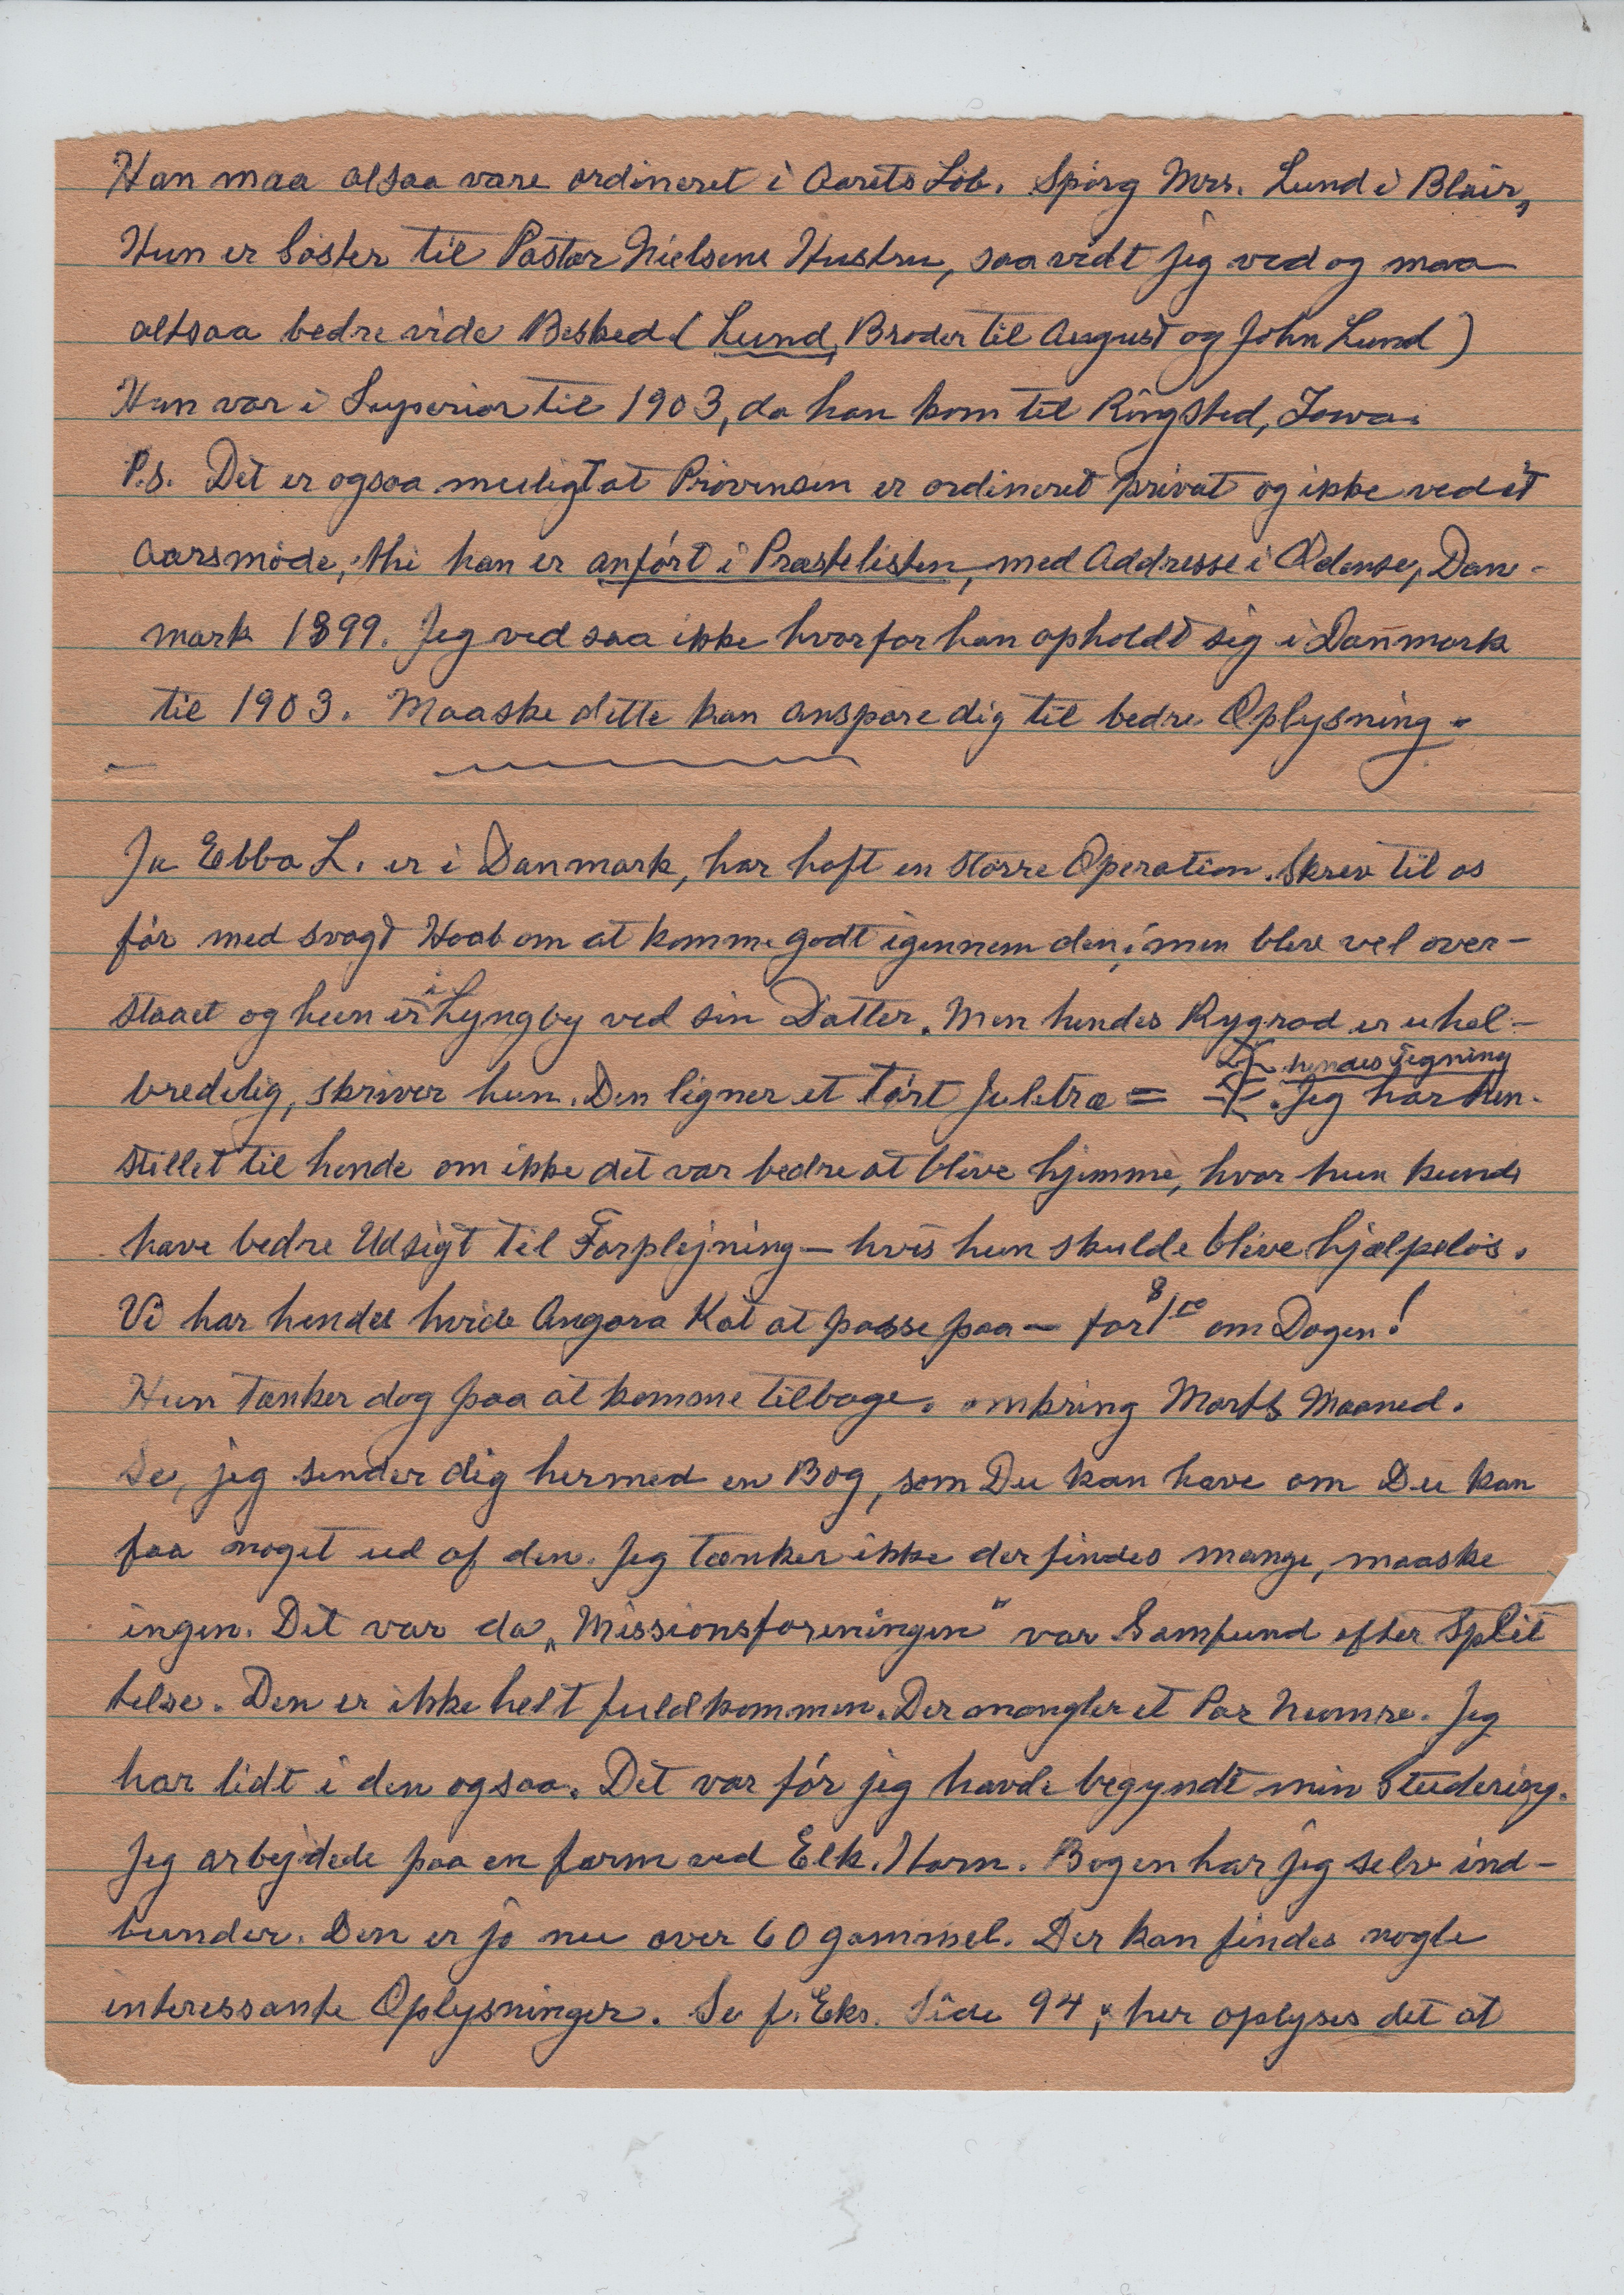 Han maa altsaa være ordineret i Aarets Løb. Spørg Mrs. Lund i Blair,
Hun er Søster til Pastor Nielsens Hustru, saavidt jeg ved og maa
altsaa bedre vide Besked (Lund, Broder til August og John Lund)
Han var i Superior til 1903, da han kom til Ringsted, Iowa.
P.S. Det er ogsaa muligt at Provensen er ordineret privat og ikke ved et
Aarsmøde, thi han er anført i Præstelisten, med Addresse i Odense, Dan-
mark 1899. Jeg ved saa ikke hvorfor han opholdt sig i Danmark
til 1903. Maaske dette kan anspore dig til bedre Oplysning.
Ja Ebba L. er i Danmark, har haft en større Operation. Skrev til os
før med svagt Haab om at komme godt igennem den; men blev vel over-
staaet og hun er i Lyngby ved sin Datter. Men hendes Rygrad er uhel-
hendes Tegning
bredelig, skriver hun. Den ligner et tørt Juletræ = . Jeg har hen-
stillet til hende om ikke det var bedre at blive hjemme, hvor hun kunde
have bedre Udsigt til Forplejning — hvis hun skulde blive hjælpeløs.
Vi har hendes hvide Angora Kat at passe paa — for $1.00 om Dagen!
Hun tænker dog paa at komme tilbage. omkring Marts Maaned.
Se, jeg sender dig hermed en Bog, som Du kan have om Du kan
faa noget ud af den. Jeg tænker ikke der findes mange, maaske
ingen. Det var da „Missionsforeningen" var Samfund efter Split
telse. Den er ikke helt fuldkommen. Der mangler et Par Numre. Jeg
har lidt i den ogsaa. Det var før jeg havde begyndt min Studering.
Jeg arbejdede paa en farm ved Elk. Horn. Bogen har jeg selv ind-
bunder. Den er jo nu over 60 gammel. Der kan findes nogle
interessante Oplysninger. Se f. Eks. Side 94; her oplyses det at